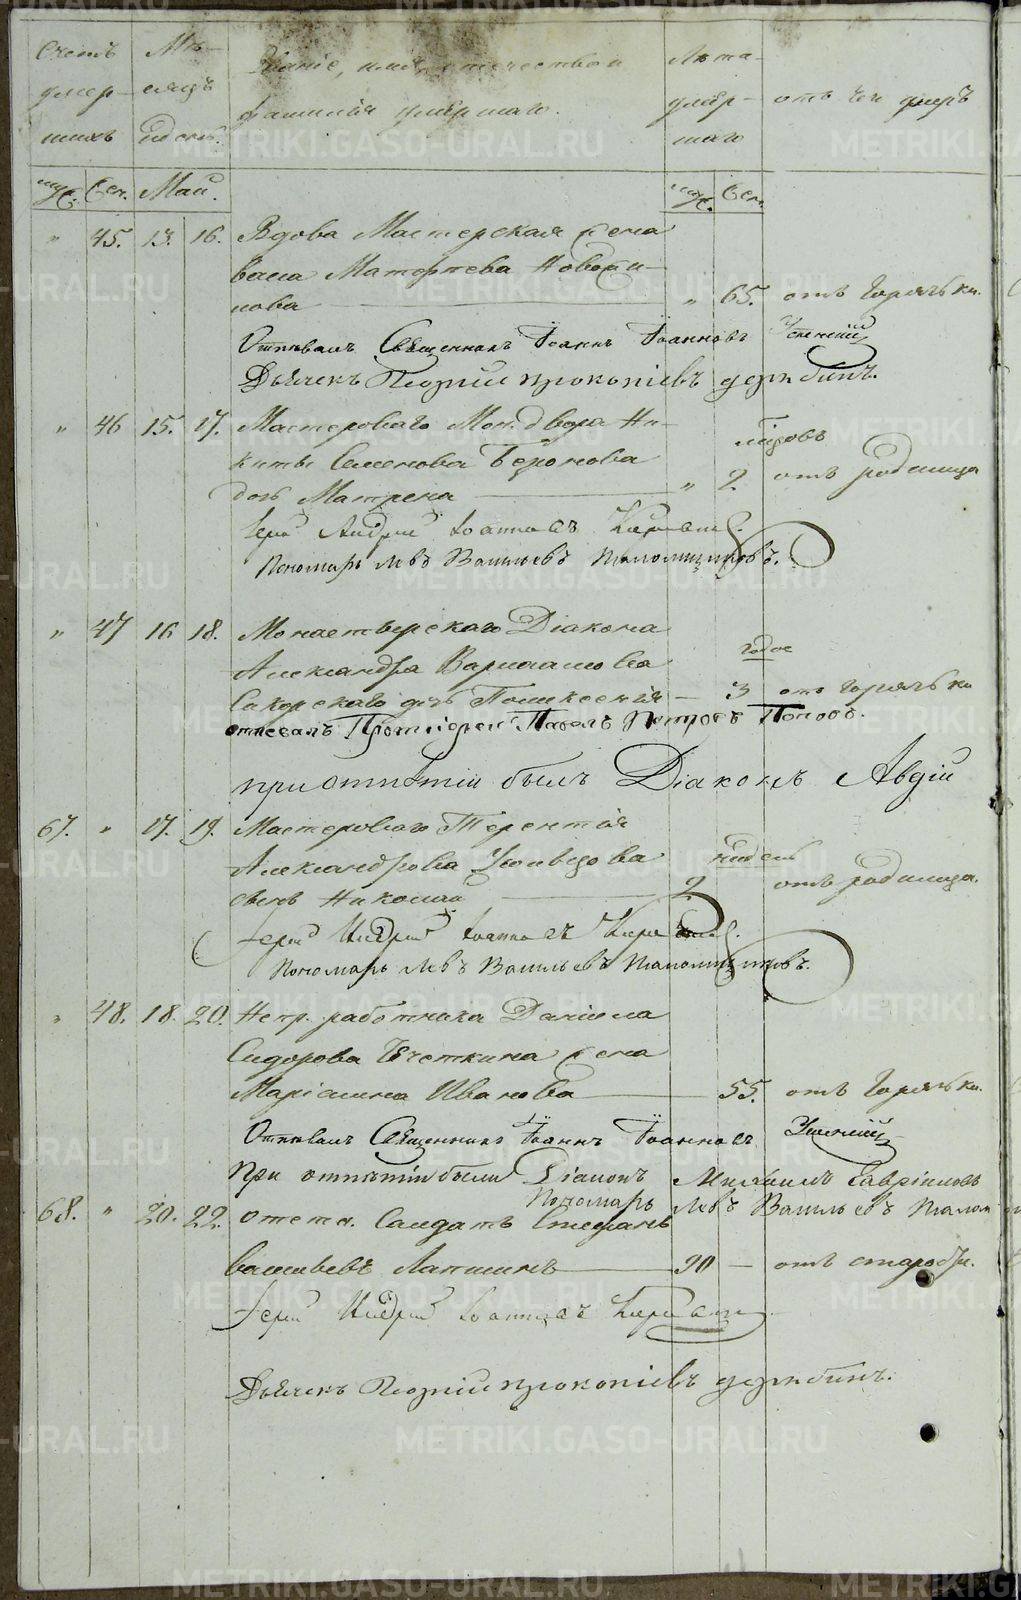 Счетъ умер-шихъ
Мѣ-сяцъ и день.
Званіе, имя, отчество и фамилія умершаго.
Лѣта умер-шаго
отъ чего умеръ
Муж. Жен. Май. Муж. Жен.
" 45. 13. 16. Вдова Мастерская жена
нова " 65. отъ горячки.
Отпѣвалъ Священникъ Іоаннъ Іоанновъ Успенскій
Дьячекъ Прокопіевъ
" 46 15. 17. Мастероваго Мон. двора Ни-
киты Семенова годовъ
дочь Матрена " 2. отъ родимца
Іерей Андрей Іоанновъ
Пономарь Левъ Васильевъ
" 47 16 18. Монастырскаго Діакона
Александра Варлаамова годов
дочь " 3 отъ горячки
отпевалъ Протоіерей Павелъ Петровъ Поповъ.
при отпѣтіи былъ Діаконъ Авдій
67. " 17. 19. Мастероваго Терентія
Александрова недель
сынъ Николай 2 отъ родимца.
Іерей Андрей Іоанновъ
Пономарь Левъ Васильевъ
" 48. 18. 20. Непр. работника Даніила
Сидорова жена
Маріамна Иванова 55. отъ горячки.
Отпѣвалъ Священникъ Іоаннъ Іоанновъ Успенскій
При отпѣтіи были Діаконъ Михаилъ Гавріиловъ
Пономарь Левъ Васильевъ
68. " 20. 22. Отстн. Солдатъ Стефанъ
Васильевъ Лапшинъ 90 — отъ старости.
Іерей Андрей Іоанновъ
Дьячекъ Прокопіевъ
METRIKI.GASO-URAL.RU